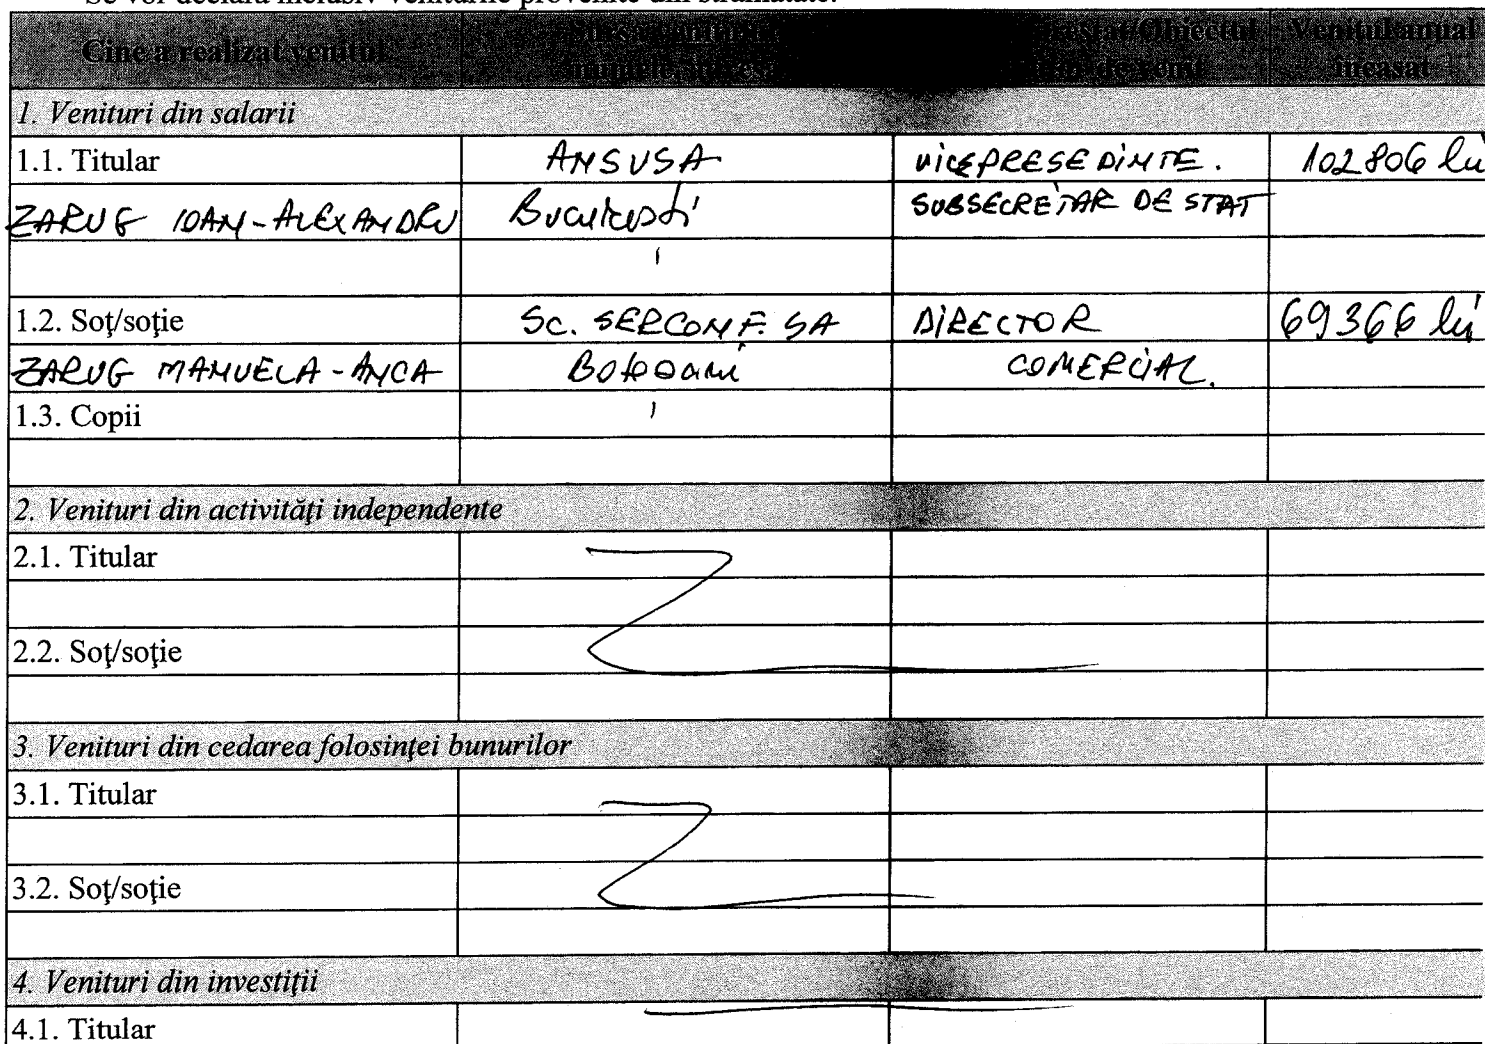 Se vor declara inclusiv veniturile provenite din străinătate.
Cine a realizat venitul
Venitul anual
încasat
1. Venituri din salarii
1.1. Titular ANSVSA VICEPRESEDINTE. 102806 lei
ZARUG IOAN-ALEXANDRU București SUBSECRETAR DE STAT
1.2. Soţ/soţie SC. SERCONF. SA DIRECTOR 69366 lei
ZARUG MANUELA-ANCA Botoșani COMERCIAL.
1.3. Copii
2. Venituri din activităţi independente
2.1. Titular
2.2. Soţ/soţie
3. Venituri din cedarea folosinţei bunurilor
3.1. Titular
3.2. Soţ/soţie
4. Venituri din investiţii
4.1. Titular